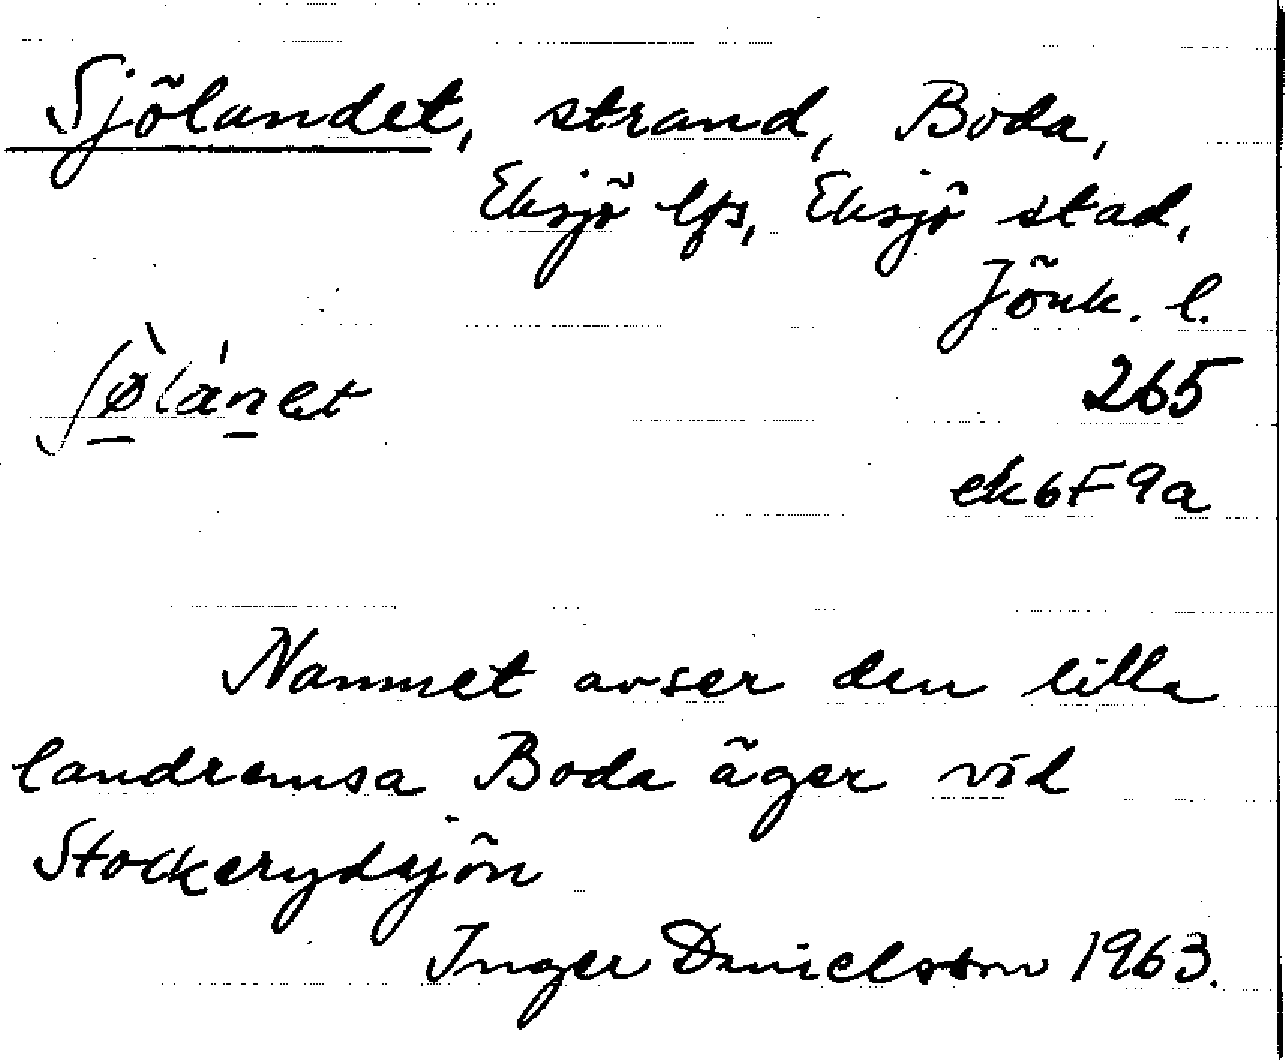 Sjölandet, strand, Boda,
Eksjö lfs, Eksjö stad,
Jönk. l.
ʃø̠̀lán̠et
265
ek6F9a
Namnet avser den lilla
landremsa Boda äger vid
Stockerydsjön
Inger Danielsson 1963.